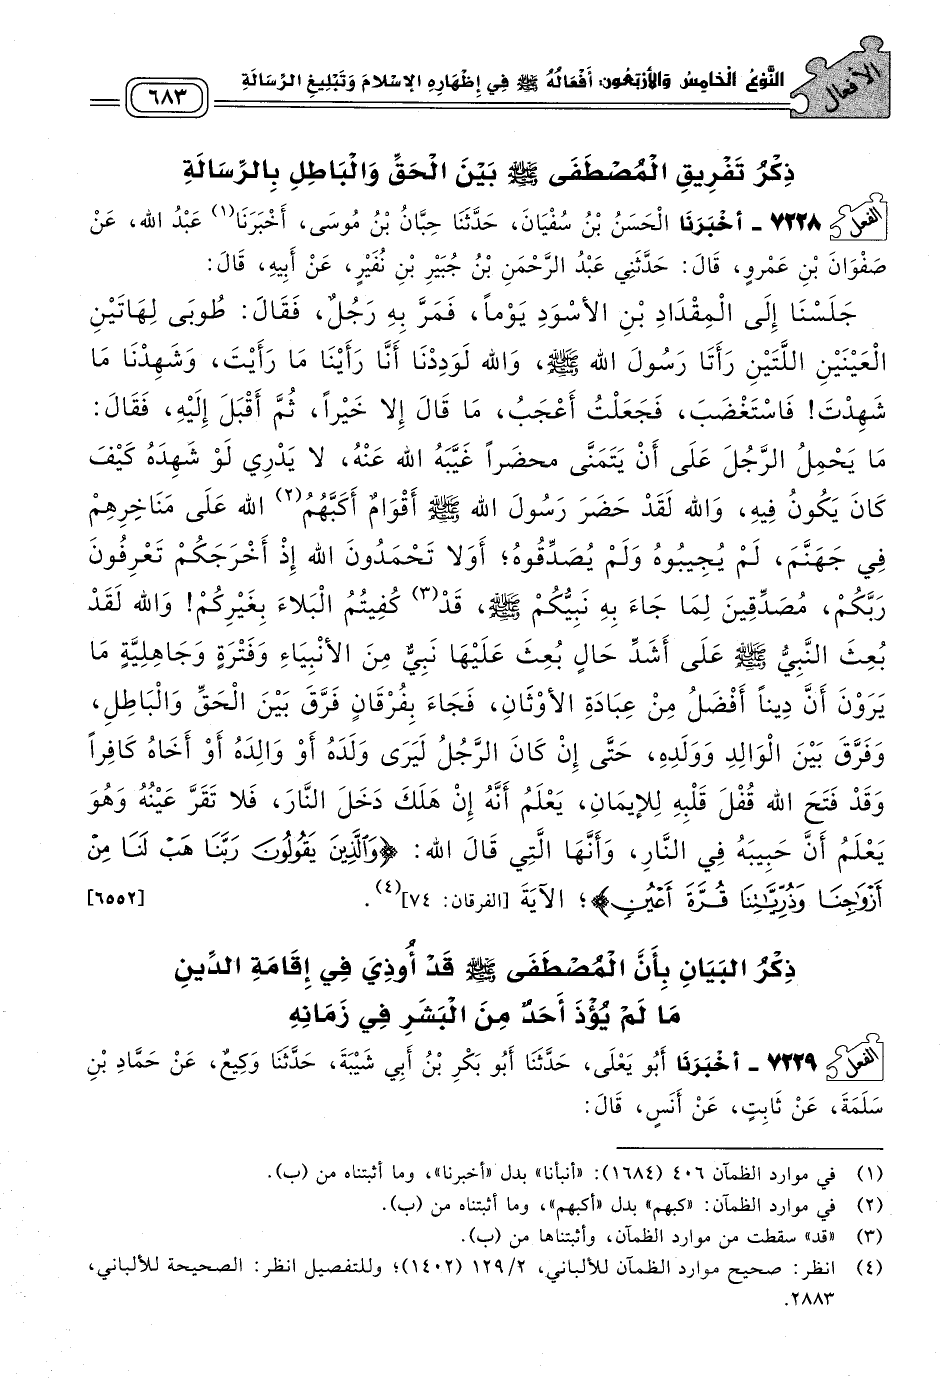 الأفعال
النَّوْعُ الْخَامِسُ وَالأَرْبَعُونَ: أَفْعَالُهُ ﷺ فِي إِظْهَارِهِ الإِسْلامَ وَتَبْلِيغِ الرِّسَالَةِ
٦٨٣
ذِكْرُ تَفْرِيقِ الْمُصْطَفَى ﷺ بَيْنَ الْحَقِّ وَالْبَاطِلِ بِالرِّسَالَةِ
الفعل ٧٢٢٨ - أَخْبَرَنَا الْحَسَنُ بْنُ سُفْيَانَ، حَدَّثَنَا حِبَّانُ بْنُ مُوسَى، أَخْبَرَنَا(١) عَبْدُ الله، عَنْ
صَفْوَانَ بْنِ عَمْرٍو، قَالَ: حَدَّثَنِي عَبْدُ الرَّحْمَنِ بْنُ جُبَيْرِ بْنِ نُفَيْرٍ، عَنْ أَبِيهِ، قَالَ:
جَلَسْنَا إِلَى الْمِقْدَادِ بْنِ الأَسْوَدِ يَوْماً، فَمَرَّ بِهِ رَجُلٌ، فَقَالَ: طُوبَى لِهَاتَيْنِ
الْعَيْنَيْنِ اللَّتَيْنِ رَأَتَا رَسُولَ الله ﷺ، وَالله لَوَدِدْنَا أَنَّا رَأَيْنَا مَا رَأَيْتَ، وَشَهِدْنَا مَا
شَهِدْتَ! فَاسْتَغْضَبَ، فَجَعَلْتُ أَعْجَبُ، مَا قَالَ إِلا خَيْراً، ثُمَّ أَقْبَلَ إِلَيْهِ، فَقَالَ:
مَا يَحْمِلُ الرَّجُلَ عَلَى أَنْ يَتَمَنَّى محضراً غَيَّبَهُ الله عَنْهُ، لا يَدْرِي لَوْ شَهِدَهُ كَيْفَ
كَانَ يَكُونُ فِيهِ، وَالله لَقَدْ حَضَرَ رَسُولَ الله ﷺ أَقْوَامٌ أَكَبَّهُمُ(٢) الله عَلَى مَنَاخِرِهِمْ
فِي جَهَنَّمَ، لَمْ يُجِيبُوهُ وَلَمْ يُصَدِّقُوهُ؛ أَوَلا تَحْمَدُونَ الله إِذْ أَخْرَجَكُمْ تَعْرِفُونَ
رَبَّكُمْ، مُصَدِّقِينَ لِمَا جَاءَ بِهِ نَبِيُّكُمْ ﷺ، قَدْ(٣) كُفِيتُمُ الْبَلاءَ بِغَيْرِكُمْ! وَالله لَقَدْ
بُعِثَ النَّبِيُّ ﷺ عَلَى أَشَدِّ حَالٍ بُعِثَ عَلَيْهَا نَبِيٌّ مِنَ الأَنْبِيَاءِ وَفَتْرَةٍ وَجَاهِلِيَّةٍ مَا
يَرَوْنَ أَنَّ دِيناً أَفْضَلُ مِنْ عِبَادَةِ الأَوْثَانِ، فَجَاءَ بِفُرْقَانٍ فَرَّقَ بَيْنَ الْحَقِّ وَالْبَاطِلِ،
وَفَرَّقَ بَيْنَ الْوَالِدِ وَوَلَدِهِ، حَتَّى إِنْ كَانَ الرَّجُلُ لَيَرَى وَلَدَهُ أَوْ وَالِدَهُ أَوْ أَخَاهُ كَافِراً
وَقَدْ فَتَحَ الله قُفْلَ قَلْبِهِ لِلإِيمَانِ، يَعْلَمُ أَنَّهُ إِنْ هَلَكَ دَخَلَ النَّارَ، فَلا تَقَرَّ عَيْنُهُ وَهُوَ
يَعْلَمُ أَنَّ حَبِيبَهُ فِي النَّارِ، وَأَنَّهَا الَّتِي قَالَ الله: ﴿وَٱلَّذِينَ يَقُولُونَ رَبَّنَا هَبْ لَنَا مِنْ
أَزْوَٰجِنَا وَذُرِّيَّٰتِنَا قُرَّةَ أَعْيُنٍ﴾؛ الآيَةَ [الفرقان: ٧٤](٤). [٦٥٥٢]
ذِكْرُ الْبَيَانِ بِأَنَّ الْمُصْطَفَى ﷺ قَدْ أُوذِيَ فِي إِقَامَةِ الدِّينِ
مَا لَمْ يُؤْذَ أَحَدٌ مِنَ الْبَشَرِ فِي زَمَانِهِ
الفعل ٧٢٢٩ - أَخْبَرَنَا أَبُو يَعْلَى، حَدَّثَنَا أَبُو بَكْرِ بْنُ أَبِي شَيْبَةَ، حَدَّثَنَا وَكِيعٌ، عَنْ حَمَّادِ بْنِ
سَلَمَةَ، عَنْ ثَابِتٍ، عَنْ أَنَسٍ، قَالَ:
(١) في موارد الظمآن ٤٠٦ (١٦٨٤): «أنبأنا» بدل «أخبرنا»، وما أثبتناه من (ب).
(٢) في موارد الظمآن: «كبهم» بدل «أكبهم»، وما أثبتناه من (ب).
(٣) «قد» سقطت من موارد الظمآن، وأثبتناها من (ب).
(٤) انظر: صحيح موارد الظمآن للألباني، ١٢٩/٢ (١٤٠٢)؛ وللتفصيل انظر: الصحيحة للألباني،
٢٨٨٣.